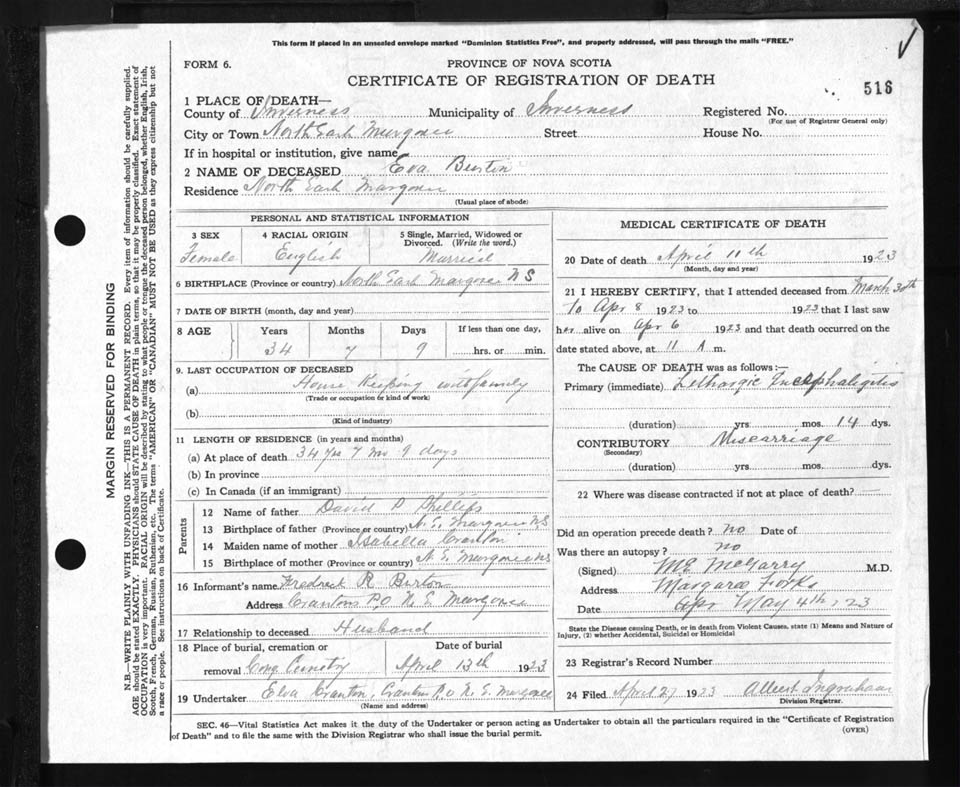 This form if placed in an unsealed envelope marked "Dominion Statistics Free", and properly addressed, will pass through the mails "FREE."
FORM 6.
PROVINCE OF NOVA SCOTIA
CERTIFICATE OF REGISTRATION OF DEATH
516
1 PLACE OF DEATH—
County of Inverness Municipality of Inverness Registered No.
(For use of Registrar General only)
City or Town North East Margaree Street House No.
If in hospital or institution, give name
2 NAME OF DECEASED Eva Burton
Residence North East Margaree
(Usual place of abode)
PERSONAL AND STATISTICAL INFORMATION
3 SEX 4 RACIAL ORIGIN 5 Single, Married, Widowed or Divorced. (Write the word.)
Female English Married
6 BIRTHPLACE (Province or country) North East Margaree NS
7 DATE OF BIRTH (month, day and year)
8 AGE Years Months Days If less than one day,
34 7 9 hrs. or min.
9. LAST OCCUPATION OF DECEASED
(a) House Keeping with family
(Trade or occupation or kind of work)
(b)
(Kind of industry)
11 LENGTH OF RESIDENCE (in years and months)
(a) At place of death 34 yrs 7 mo 9 days
(b) In province
(c) In Canada (if an immigrant)
Parents
12 Name of father David P Phillips
13 Birthplace of father (Province or country) N. E. Margaree NS
14 Maiden name of mother Isabella Cranton
15 Birthplace of mother (Province or country) N. E. Margaree NS
16 Informant's name Fredrick R Burton
Address Crantons P.O N. E. Margaree
17 Relationship to deceased Husband
18 Place of burial, cremation or Date of burial
removal Cong Cemetry April 13th 1923
19 Undertaker Elva Cranton, Crantons P.O N. E. Margaree
(Name and address)
MEDICAL CERTIFICATE OF DEATH
20 Date of death April 11th 1923
(Month, day and year)
21 I HEREBY CERTIFY, that I attended deceased from March 30th
to Apr 8 1923 to 1923 that I last saw
her alive on Apr 6 1923 and that death occurred on
date stated above, at 11 A m.
The CAUSE OF DEATH was as follows:—
Primary (immediate) Lethargic Incephaligitis
(duration) yrs. mos. 14 dys.
CONTRIBUTORY Miscarriage
(Secondary)
(duration) yrs. mos. dys.
22 Where was disease contracted if not at place of death?
Did an operation precede death? no Date of
Was there an autopsy? no
(Signed) ME McGarry M.D.
Address Margaree Forks
Date Apr May 4th, 23
State the Disease causing Death, or in death from Violent Causes, state (1) Means and Nature of
Injury, (2) whether Accidental, Suicidal or Homicidal
23 Registrar's Record Number
24 Filed April 27 1923 Albert Ingraham
Division Registrar.
SEC. 46—Vital Statistics Act makes it the duty of the Undertaker or person acting as Undertaker to obtain all the particulars required in the "Certificate of Registration
of Death" and to file the same with the Division Registrar who shall issue the burial permit.
(OVER)
MARGIN RESERVED FOR BINDING
N.B.—WRITE PLAINLY WITH UNFADING INK—THIS IS A PERMANENT RECORD. Every item of information should be carefully supplied.
AGE should be stated EXACTLY. PHYSICIANS should STATE CAUSE OF DEATH in plain terms, so that it may be properly classified. Exact statement of
OCCUPATION is very important. RACIAL ORIGIN will be described by stating to what people or tongue the deceased person belonged, whether English, Irish,
Scotch, French, German, Russian, Ruthenian, etc. The terms "AMERICAN" OR "CANADIAN" MUST NOT BE USED as they express citizenship but not
a race or people. See instructions on back of Certificate.